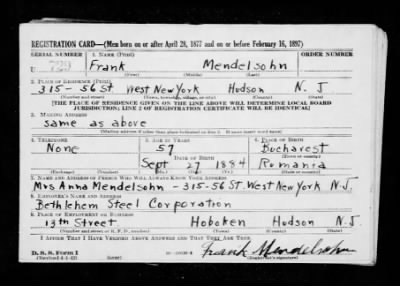 REGISTRATION CARD—(Men born on or after April 28, 1877 and on or before February 16, 1897)
SERIAL NUMBER 1. NAME (Print) ORDER NUMBER
U Frank Mendelsohn
(First) (Middle) (Last)
2. PLACE OF RESIDENCE (Print)
315-56 St. West New York Hudson N. J
(Number and street) (Town, township, village, or city) (County) (State)
[THE PLACE OF RESIDENCE GIVEN ON THE LINE ABOVE WILL DETERMINE LOCAL BOARD
JURISDICTION; LINE 2 OF REGISTRATION CERTIFICATE WILL BE IDENTICAL]
3. MAILING ADDRESS
same as above
[Mailing address if other than place indicated on line 2. If same insert word same]
4. TELEPHONE 5. AGE IN YEARS 6. PLACE OF BIRTH
None 57 Bucharest
DATE OF BIRTH (Town or county)
Sept 27 1884 Rumania
(Mo.) (Day) (Yr.) (State or country)
7. NAME AND ADDRESS OF PERSON WHO WILL ALWAYS KNOW YOUR ADDRESS
Mrs Anna Mendelsohn - 315-56 St. West New York N.J.
8. EMPLOYER'S NAME AND ADDRESS
Bethlehem Steel Corporation
9. PLACE OF EMPLOYMENT OR BUSINESS
13th Street Hoboken Hudson N.J.
(Number and street or R. F. D. number) (Town) (County) (State)
I AFFIRM THAT I HAVE VERIFIED ABOVE ANSWERS AND THAT THEY ARE TRUE.
D. S. S. Form 1 Frank Mendelsohn
(Registrant's signature)